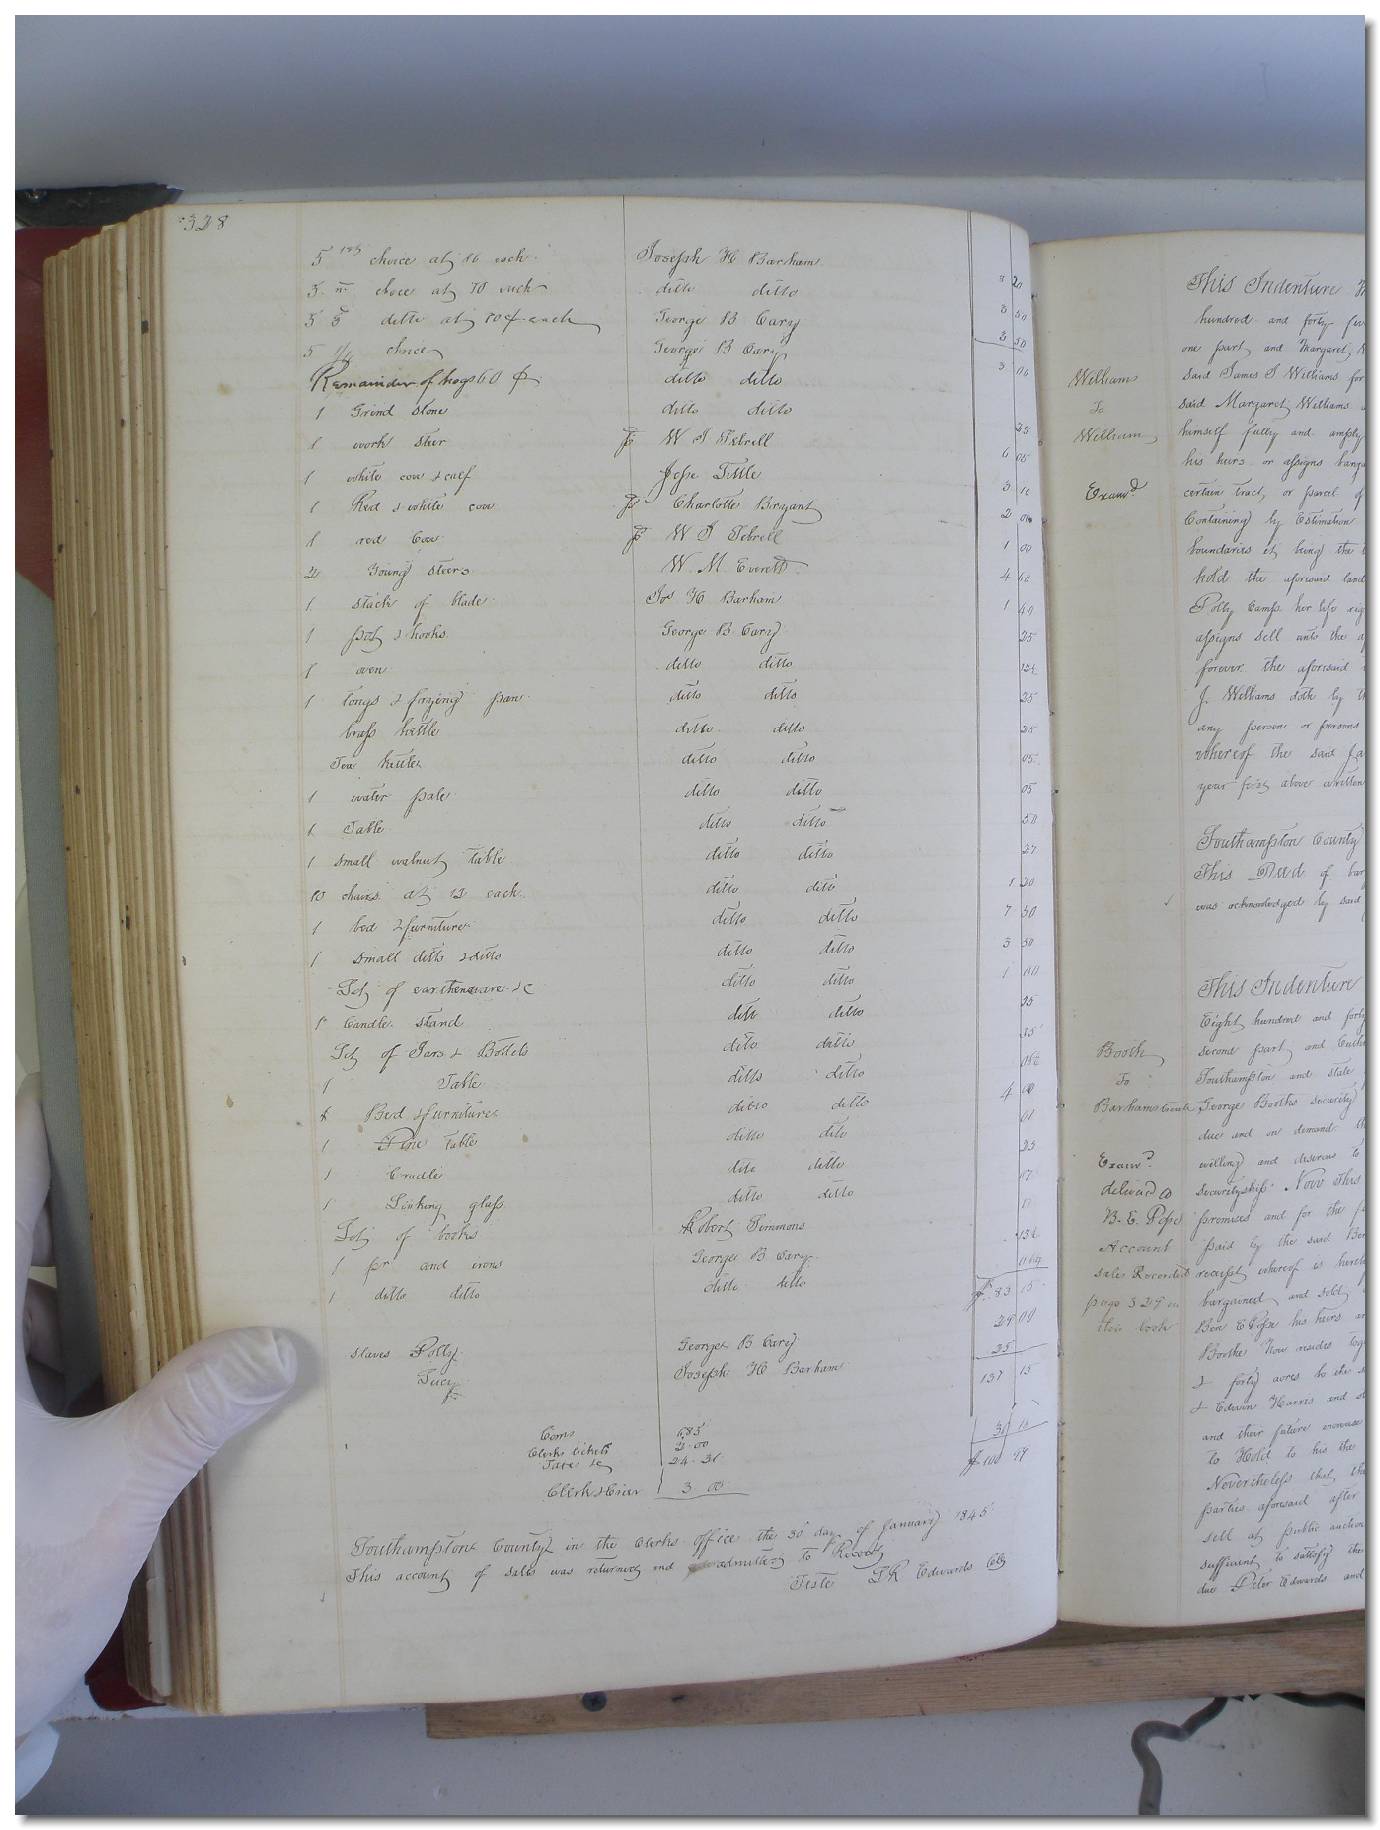 328
5 1st choice at 86 each Joseph H Barham
5 n choice at 70 each ditto ditto 3 20
5 3 ditto at 50 ¢ each George B Cary 3 50
5 4 choice George B Cary 3 50
Remainder of hogs 60 ¢ ditto ditto 3 00
1 Grind stone ditto ditto
1 work steer W J Tebrell 25
1 white cow & calf Jesse Little 6 05
1 Red & white cow Charlotte Bryant 3
1 red Cow W J Tebrell 2 00
2 Young steers W. M Everett 1 00
1 stack of blade Jos H Barham 4
1 pot & hooks George B Cary 1 40
1 oven ditto ditto 25
1 tongs & frying pan ditto ditto 12½
brass kettle ditto ditto 25
Tea kettle ditto ditto 25
1 water pale ditto ditto 05
1 Table ditto ditto 05
1 small walnut table ditto ditto 50
10 chairs at 12 each ditto ditto 27
1 bed & furniture ditto ditto 1 20
1 small ditto & ditto ditto ditto 7 50
Lot of earthenware &c ditto ditto 3 50
1 Candle stand ditto ditto 1 00
Lot of Jars & Bottels dito ditto 25
1 Table ditto ditto 35
1 Bed & furniture ditto ditto 06¼
1 Pine table ditto dito 4 00
1 Cradle dito ditto 01
1 Looking glass ditto ditto 25
Lot of books Robert Simmons 07
1 pr and irons George B Cary
1 ditto ditto ditto ditto
$ 83 15
slaves Polly George B Cary 29 00
Lucy Joseph H Barham 25
137 15
Coms 6.85
Clerks tickets 2.00
Taxe &c 24.31
Clerk & Crier 3 00
36 16
$ 100 99
Southampton County in the Clerks office the 30 day of January 1845
This account of sales was returned and admitted to Record
Teste L R Edwards Clk
This Indenture
hundred and forty
one part and Margaret
William said James J Williams for
To said Margaret Williams
William himself fully and amply
his heirs or assigns
Examd certain tract or parcel of
Containing by Estimation
boundaries it being the
hold the aforesaid land
Polly Camp her life
assigns sell unto the
forever the aforesaid
J. Williams doth by
any person or persons
whereof the said
year first above written
Southampton County
This Deed of
was acknowledged by said
This Indenture
Eight hundred and forty
Booth second part and
To Southampton and state
Barham George Booths security
due and on demand
Examd willing and desirous to
delived securityship Now this
B. E. Pope promises and for the
Account paid by the said Ben
sales Recorded receipt whereof is
page 329 in bargained and sold
this book Ben E Pope his heirs
Boothe Now resides
& forty acres to the
& Edwin Harris and
and their future increase
to Hold to his the
Nevertheless that
parties aforesaid after
sell at public auction
sufficient to satisfy the
due Peter Edwards and